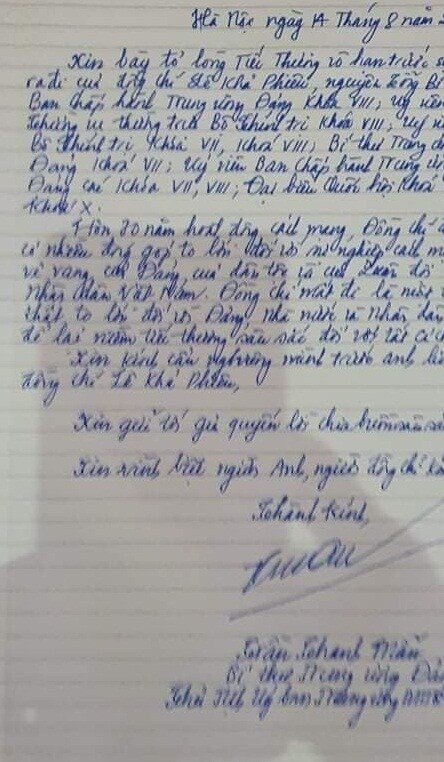 Hà Nội ngày 14 tháng 8 năm 2
Xin bày tỏ lòng tiếc thương vô hạn trước s
ra đi của đồng chí Lê Khả Phiêu, nguyên Tổng Bí
Ban Chấp hành Trung ương Đảng Khóa VIII; Uỷ viên
Thường vụ thường trực Bộ Chính trị Khóa VIII; Uỷ vi
Bộ Chính trị Khóa VII, Khóa VIII; Bí thư Trung ươ
Đảng Khóa VII; Uỷ viên Ban Chấp hành Trung ươ
Đảng các Khóa VII, VIII; Đại biểu Quốc hội Khóa
Khóa X.
Hơn 70 năm hoạt động cách mạng, Đồng chí đ
có nhiều đóng góp to lớn đối với sự nghiệp cách m
vẻ vang của Đảng, của dân tộc và của Quân đội
Nhân dân Việt Nam. Đồng chí mất đi là một
thất to lớn đối với Đảng, Nhà nước và Nhân dân
để lại niềm tiếc thương sâu sắc đối với tất cả c
Xin kính cẩn nghiêng mình trước anh li
đồng chí Lê Khả Phiêu,
Xin gửi tới gia quyến lời chia buồn sâu sắ
Xin vĩnh biệt người Anh, người đồng chí kí
Thành kính,
Trần Thanh Mẫn
Bí thư Trung ương Đản
Chủ tịch Uỷ ban Trung ương MTT